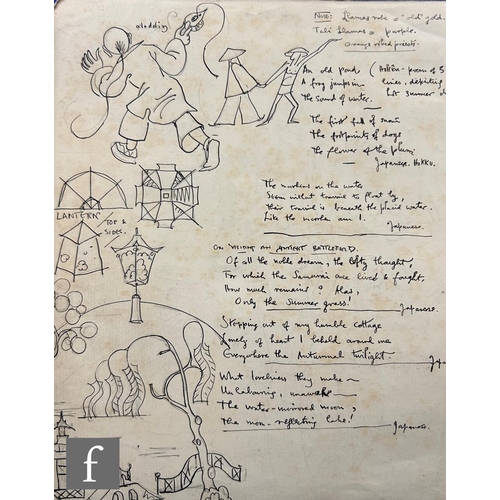 Note: Llamas robe = "old" gold.
Tali Llamas = purple.
Orange robed priests.
aladdin
An old pond (Hokku - poem of 3
A frog jumps in lines, depicting
The sound of water. hot summer d
The first fall of snow
The footprints of dogs
The flower of the plum.
Japanese. Hokku.
on the water
Seem without travail to float by,
Their travail is beneath the placid water.
Like the am I.
Japanese.
LANTERN
TOP &
SIDES.
ON VISITING AN ANCIENT BATTLEFIELD.
Of all the noble dreams, the lofty thought,
For which the Samurai once lived & fought,
How much remains? Alas,
Only the Summer grass!
Japanese.
Stepping out of my humble cottage
Lonely of heart I beheld around me
Everywhere the Autumnal twilight
Jap
What loveliness they make
Unlabouring, unaware
The water-mirrored moon,
The moon-reflecting lake!
Japanese.
f